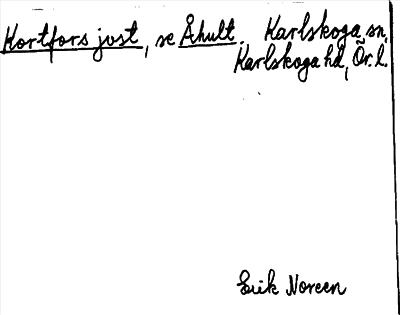 Kortfors just, se Åhult. Karlskoga sn,
Karlskoga hd, Ör. l.
Erik Noreen